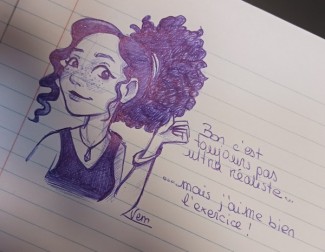 Bon c'est
toujours pas
ultra réaliste...
....mais j'aime bien
l'exercice !
Nem